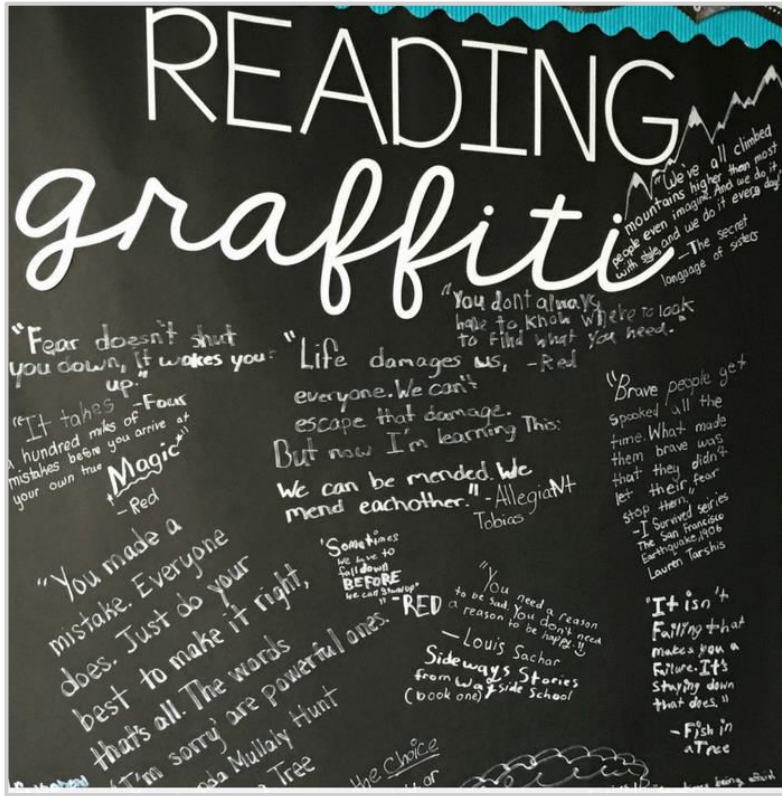 READING
graffiti
"We've all climbed
mountains higher than most
people even imagine. And we do it
with style, and we do it every day"
-The secret
language of sisters
"You dont always
have to know where to look
to find what you need."
-Red
"Fear doesn't shut
you down, It wakes you
up."
-Four
"It takes
a hundred miles of
mistakes before you arrive at
your own true
Magic"
-Red
"Life damages us,
everyone. We can't
escape that damage.
But now I'm learning This:
We can be mended. We
mend eachother."
-AllegiaNt
Tobias
"Brave people get
spooked all the
time. What made
them brave was
that they didn't
let their fear
stop them."
-I Survived seiries
The San Francisco
Earthquake, 1906
Lauren Tarshis
"You made a
mistake. Everyone
does. Just do your
best to make it right,
that's all. The words
'I'm sorry' are powerful ones."
Mullaly Hunt
Tree
"Sometimes
we have to
fall down
BEFORE
we can stand up"
-RED
"You need a reason
to be sad. You don't need
a reason to be happy."
-Louis Sachar
Sideways Stories
from Wayside School
(book one)
"It isn't
Failing that
makes you a
Failure. It's
staying down
that does."
-Fish in
a Tree
the choice
or
being afraid